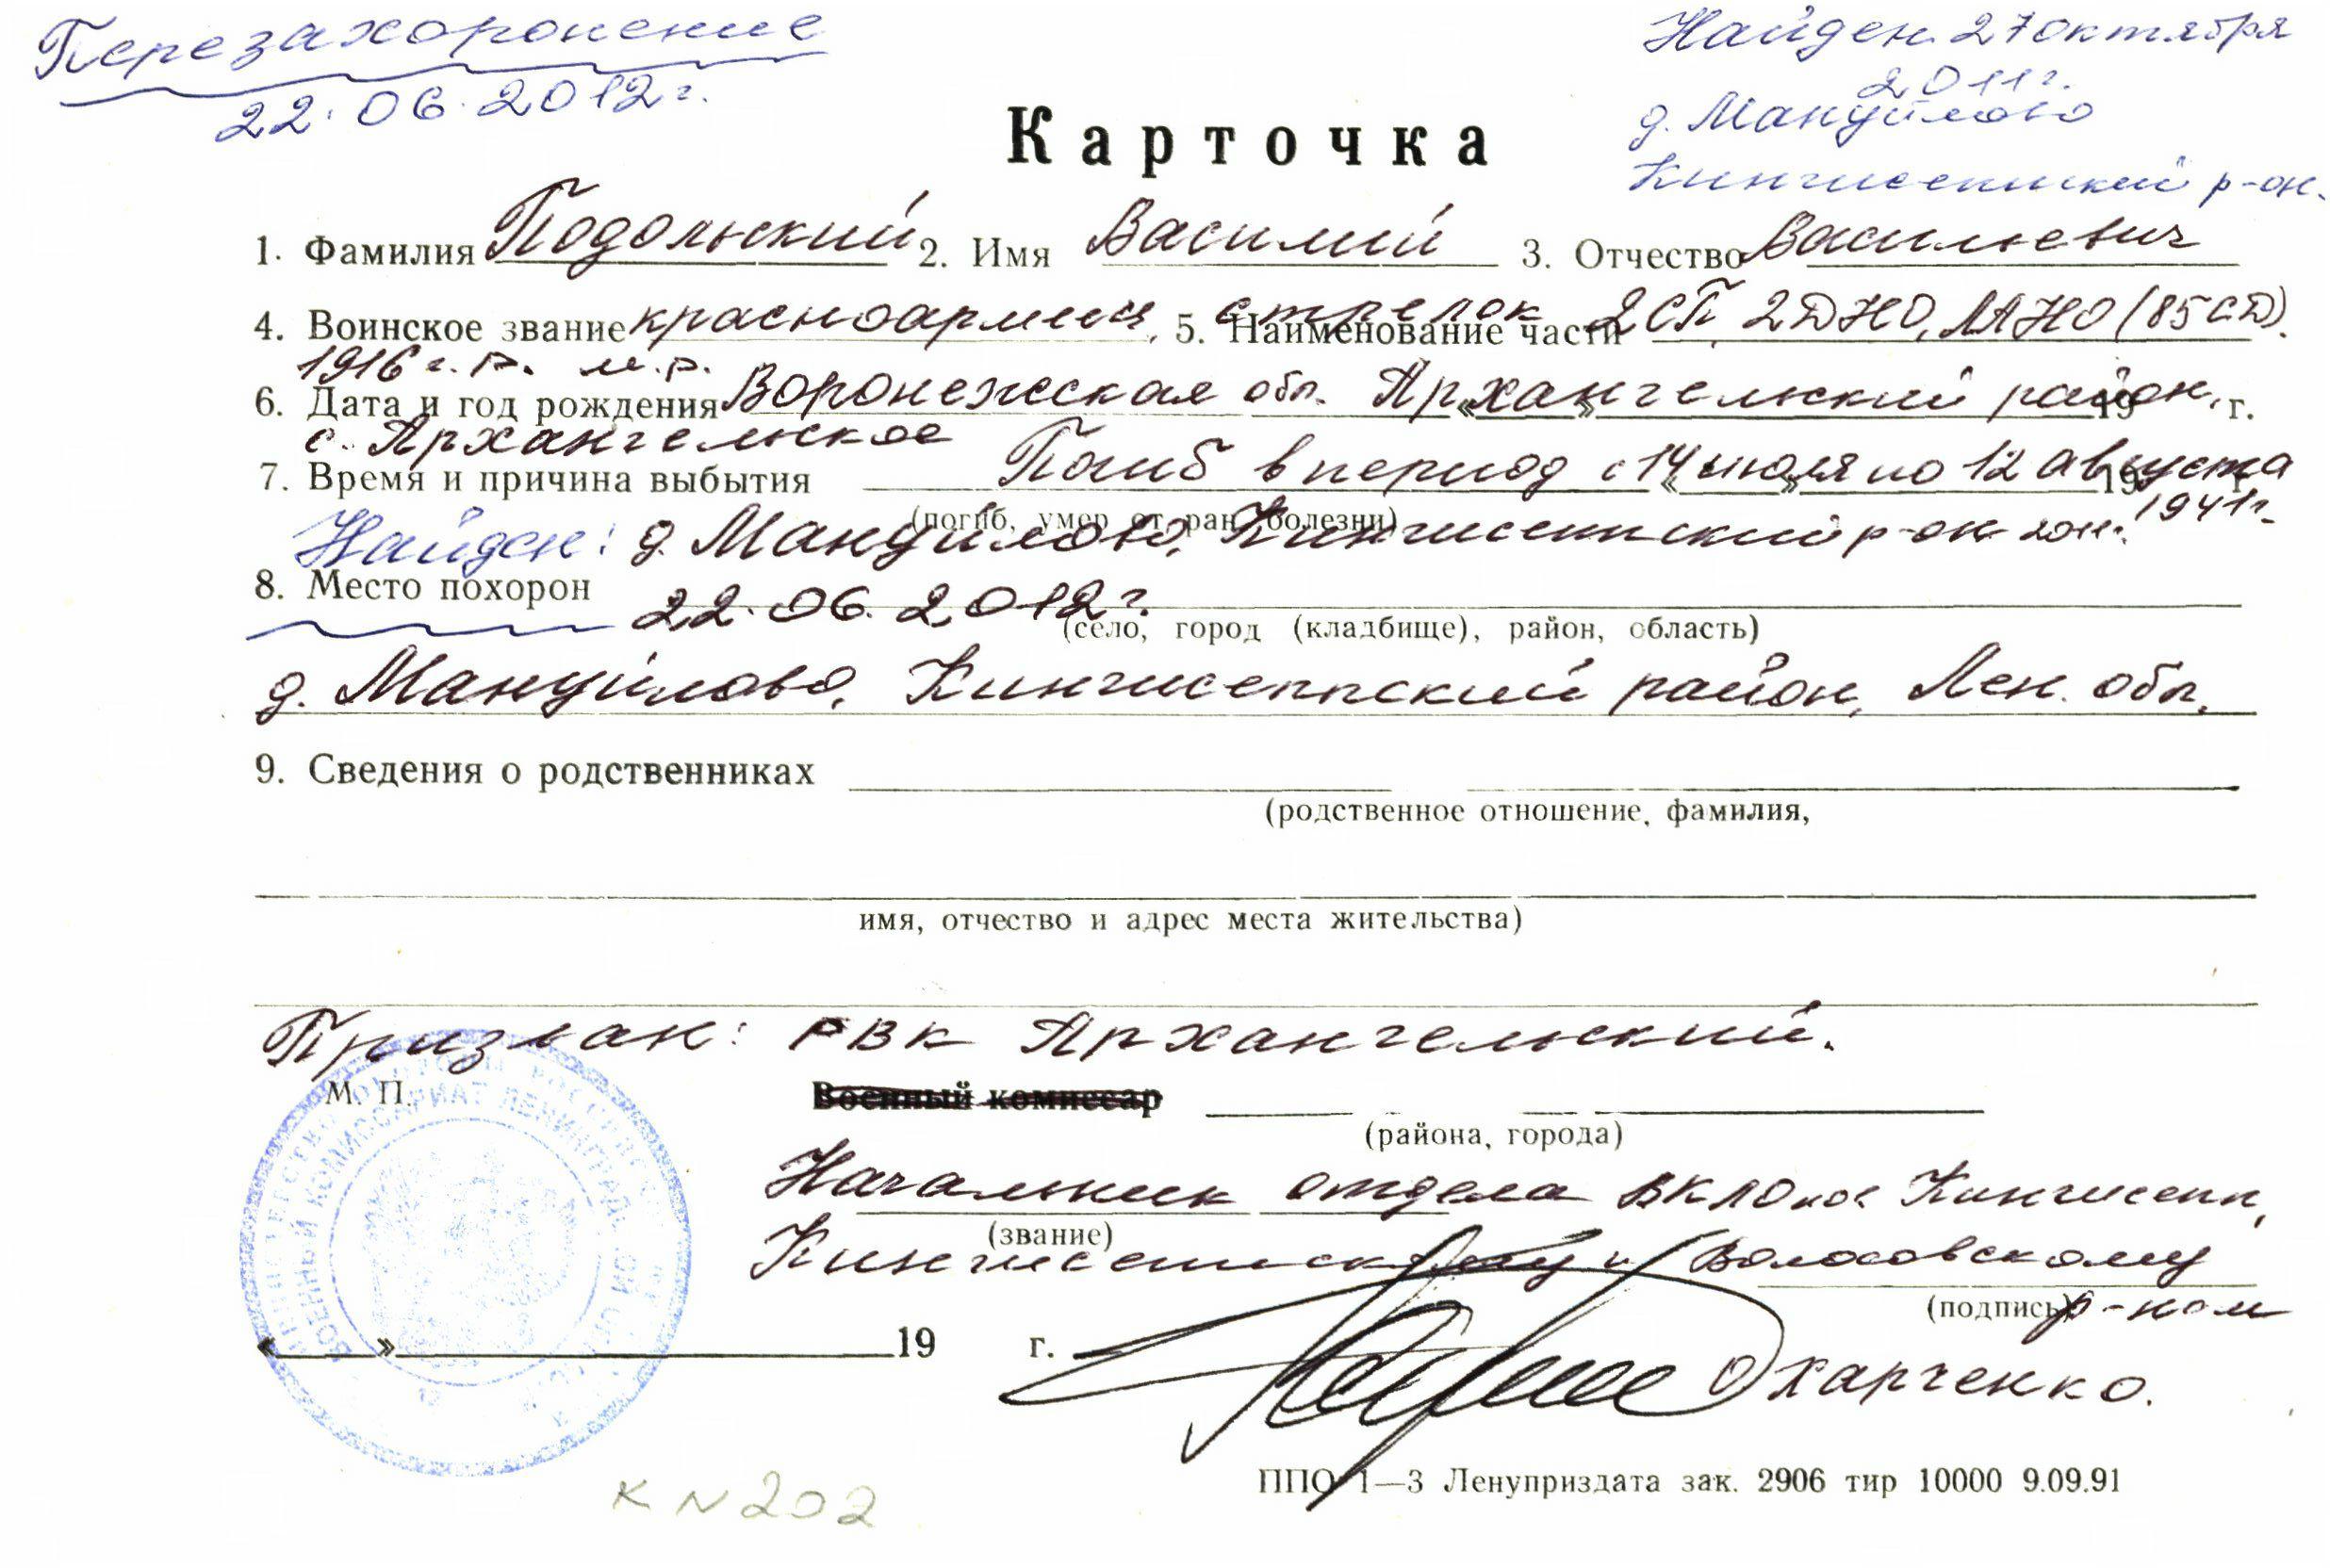 Перезахоронение
22.06.2012г.
Найден 27 октября
2011г.
д. Мануйлово
Кингисеппский р-он.
Карточка
1. Фамилия Подольский 2. Имя Василий 3. Отчество Васильевич
4. Воинское звание красноармеец, стрелок 5. Наименование части 2СП 2ДНО, ЛАНО (85СД).
1916 г.р. м.р.
6. Дата и год рождения Воронежская обл. Архангельский район, « » 19 г.
с. Архангельское
7. Время и причина выбытия Погиб в период с 14 июля по 12 августа « » 19 г.
1941г.
(погиб, умер от ран, болезни)
Найден: д. Мануйлово, Кингисеппский р-он
8. Место похорон 22.06.2012г.
(село, город (кладбище), район, область)
д. Мануйлово, Кингисеппский район, Лен. обл.
9. Сведения о родственниках
(родственное отношение, фамилия,
имя, отчество и адрес места жительства)
Призван: РВК Архангельский.
М. П.
Военный комиссар
(района, города)
Начальник отдела ВКЛО по г Кингисепп,
(звание)
Кингисеппскому и Волосовскому
(подпись)
р-нам
« » 19 г.
О Харченко.
К N 202
ППО 1—3 Ленуприздата зак. 2906 тир 10000 9.09.91
ВОЕННЫЙ КОМИССАРИАТ ЛЕНИНГРАДСКОЙ ОБЛАСТИ